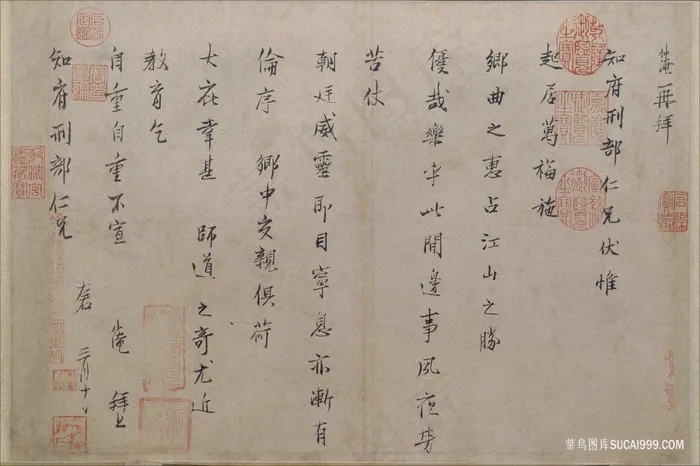 仲淹再拜
知府刑部仁兄伏惟
起居萬福施
鄉曲之惠占江山之勝
優哉樂乎此間邊事夙夜勞
苦仗
朝廷威靈即目寧息亦漸有
倫序 鄉中交親俱荷
大庇幸甚 師道之奇尤近
教育乞
自重自重不宣 仲淹 拜上
知府刑部仁兄
三月十日
菜鸟图库SUCAI999.COM